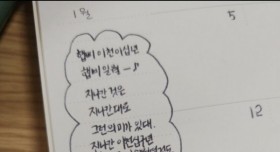 1월
5
12
햅삐 이천이십년
햅삐 일력 ~♪
지나간 것은
지나간대로
그런 의미가 있대.
지나간 이천십구년